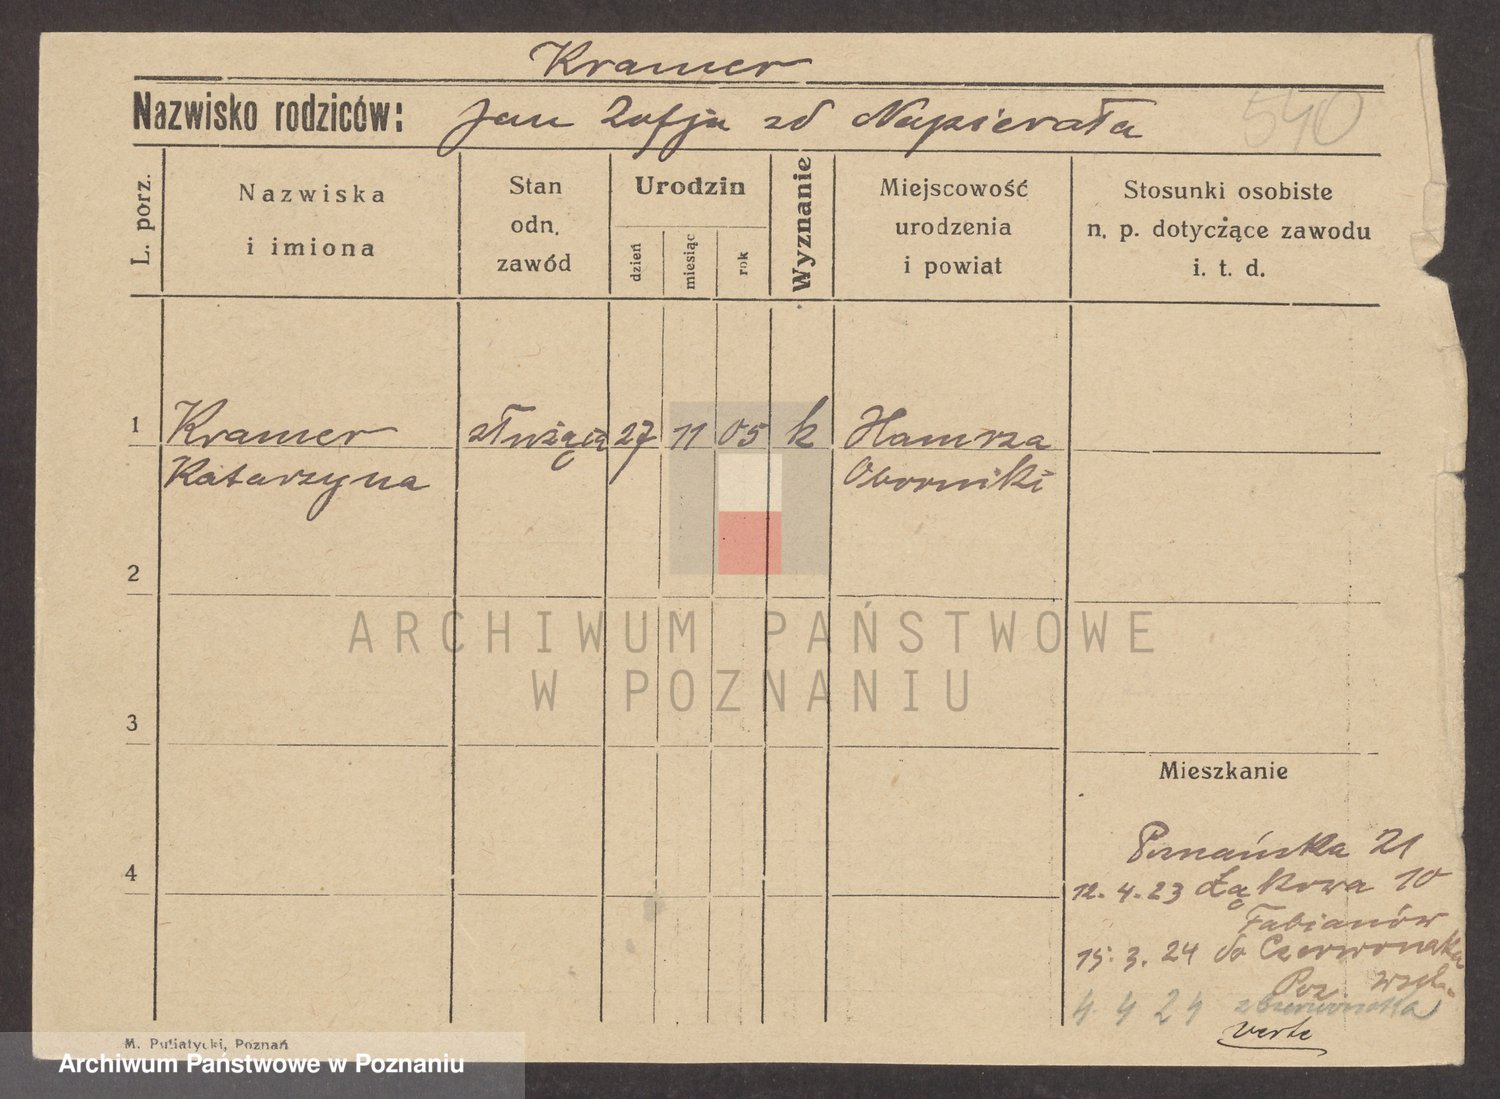 Kramer
Nazwisko rodziców: Jan Zofja zd Napierała 540
L. porz.
Nazwiska
i imiona
Stan
odn.
zawód
Urodzin
dzień
miesiąc
rok
Wyznanie
Miejscowość
urodzenia
i powiat
Stosunki osobiste
n. p. dotyczące zawodu
i. t. d.
1 Kramer służąca 27 11 05 k Hamrza
Katarzyna Oborniki
2
ARCHIWUM PAŃSTWOWE
W POZNANIU
3
Mieszkanie
4
Poznańska 21
12. 4. 23 Łąkowa 10
Fabianów
15. 3. 24 do Czerwonaka
Poz wsch.
4 4 24 z Czerwonaka
verte
M. Putiatycki, Poznań
Archiwum Państwowe w Poznaniu